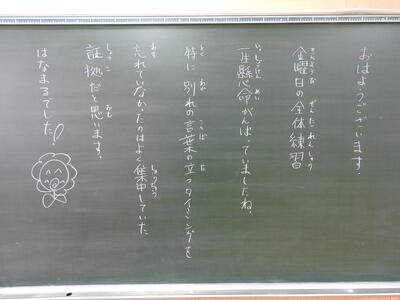 おはようございます。
金曜日の全体練習
一生懸命がんばっていましたね。
特に別れの言葉の立つタイミングを
忘れていなかったのはよく集中していた
証拠だと思います。
はなまるでした!